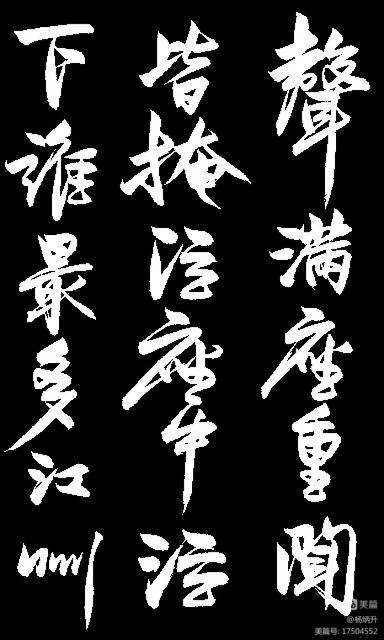 聲滿座重聞
皆掩泣座中泣
下誰最多江州
美篇
@杨炳升
美篇号: 17504552